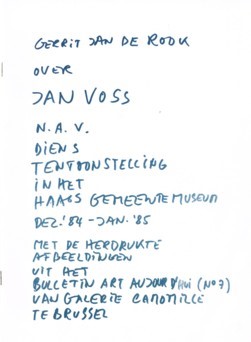 GERRIT JAN DE ROOK
OVER
JAN VOSS
N.A.V.
DIENS
TENTOONSTELLING
IN HET
HAAGS GEMEENTEMUSEUM
DEZ.'84 - JAN.'85
MET DE HERDRUKTE
AFBEELDINGEN
UIT HET
BULLETIN ART AUJOURD'HUI (No 7)
VAN GALERIE CAMOMILLE
TE BRUSSEL